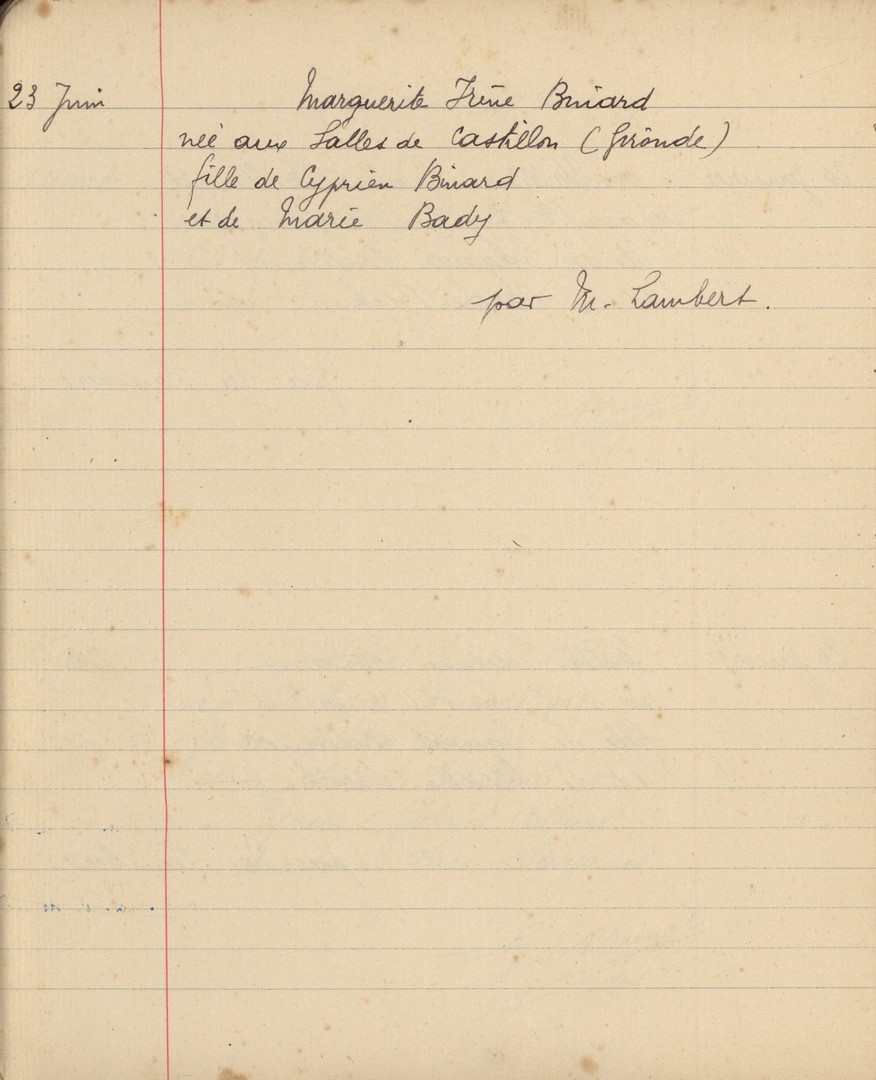 23 Juin
Marguerite Irène Binard
née aux Salles de Castillon (Gironde)
fille de Cyprien Binard
et de Marie Bady
par M. Lambert.